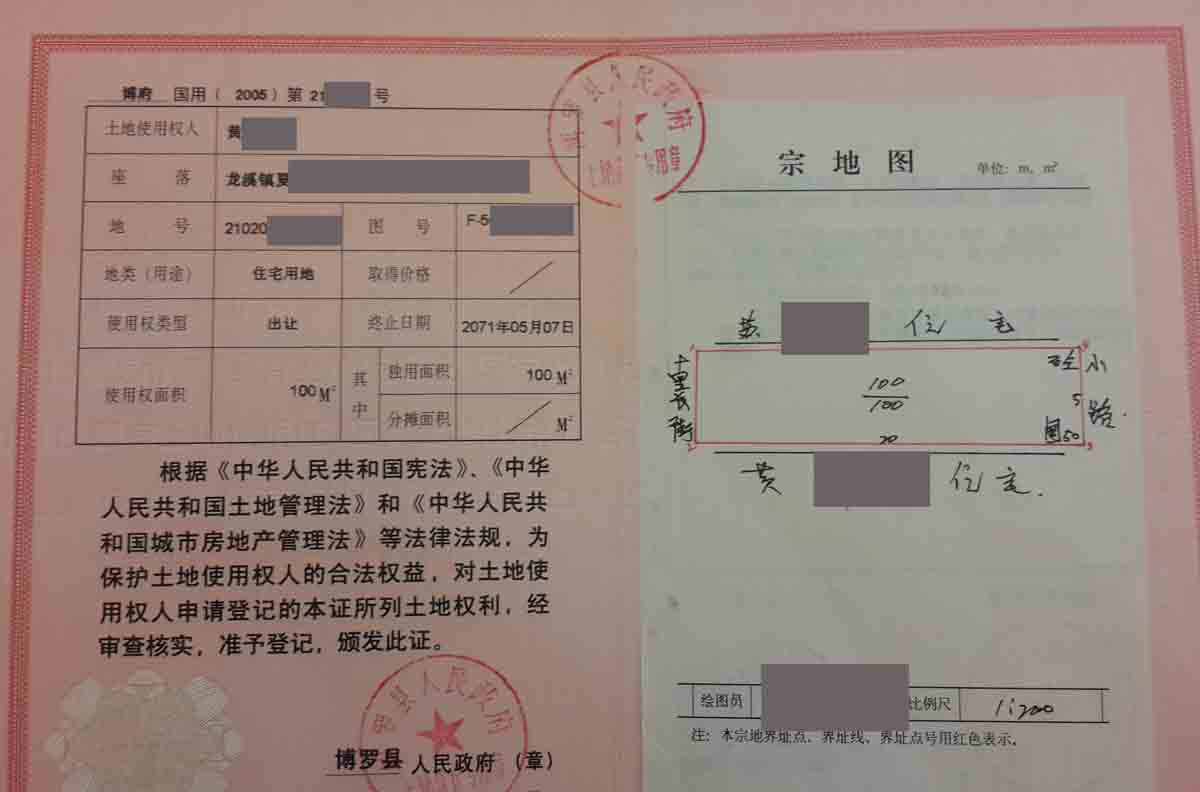 博府 国用（ 2005 ）第 21 号
土地使用权人 黄
座 落 龙溪镇夏
地 号 21020 图 号 F-5
地类（用途） 住宅用地 取得价格 ／
使用权类型 出让 终止日期 2071年05月07日
使用权面积 100 M² 其中 独用面积 100 M²
分摊面积 ／ M²
根据《中华人民共和国宪法》、《中华
人民共和国土地管理法》和《中华人民共
和国城市房地产管理法》等法律法规，为
保护土地使用权人的合法权益，对土地使
用权人申请登记的本证所列土地权利，经
审查核实，准予登记，颁发此证。
博罗县 人民政府 （章）
罗县人民政府
县人民政府
宗地图
单位：m、m²
黄 住宅
十里长街
100
100
20
5
小路
黄 住宅
绘图员 比例尺 1:200
注：本宗地界址点、界址线、界址点号用红色表示。